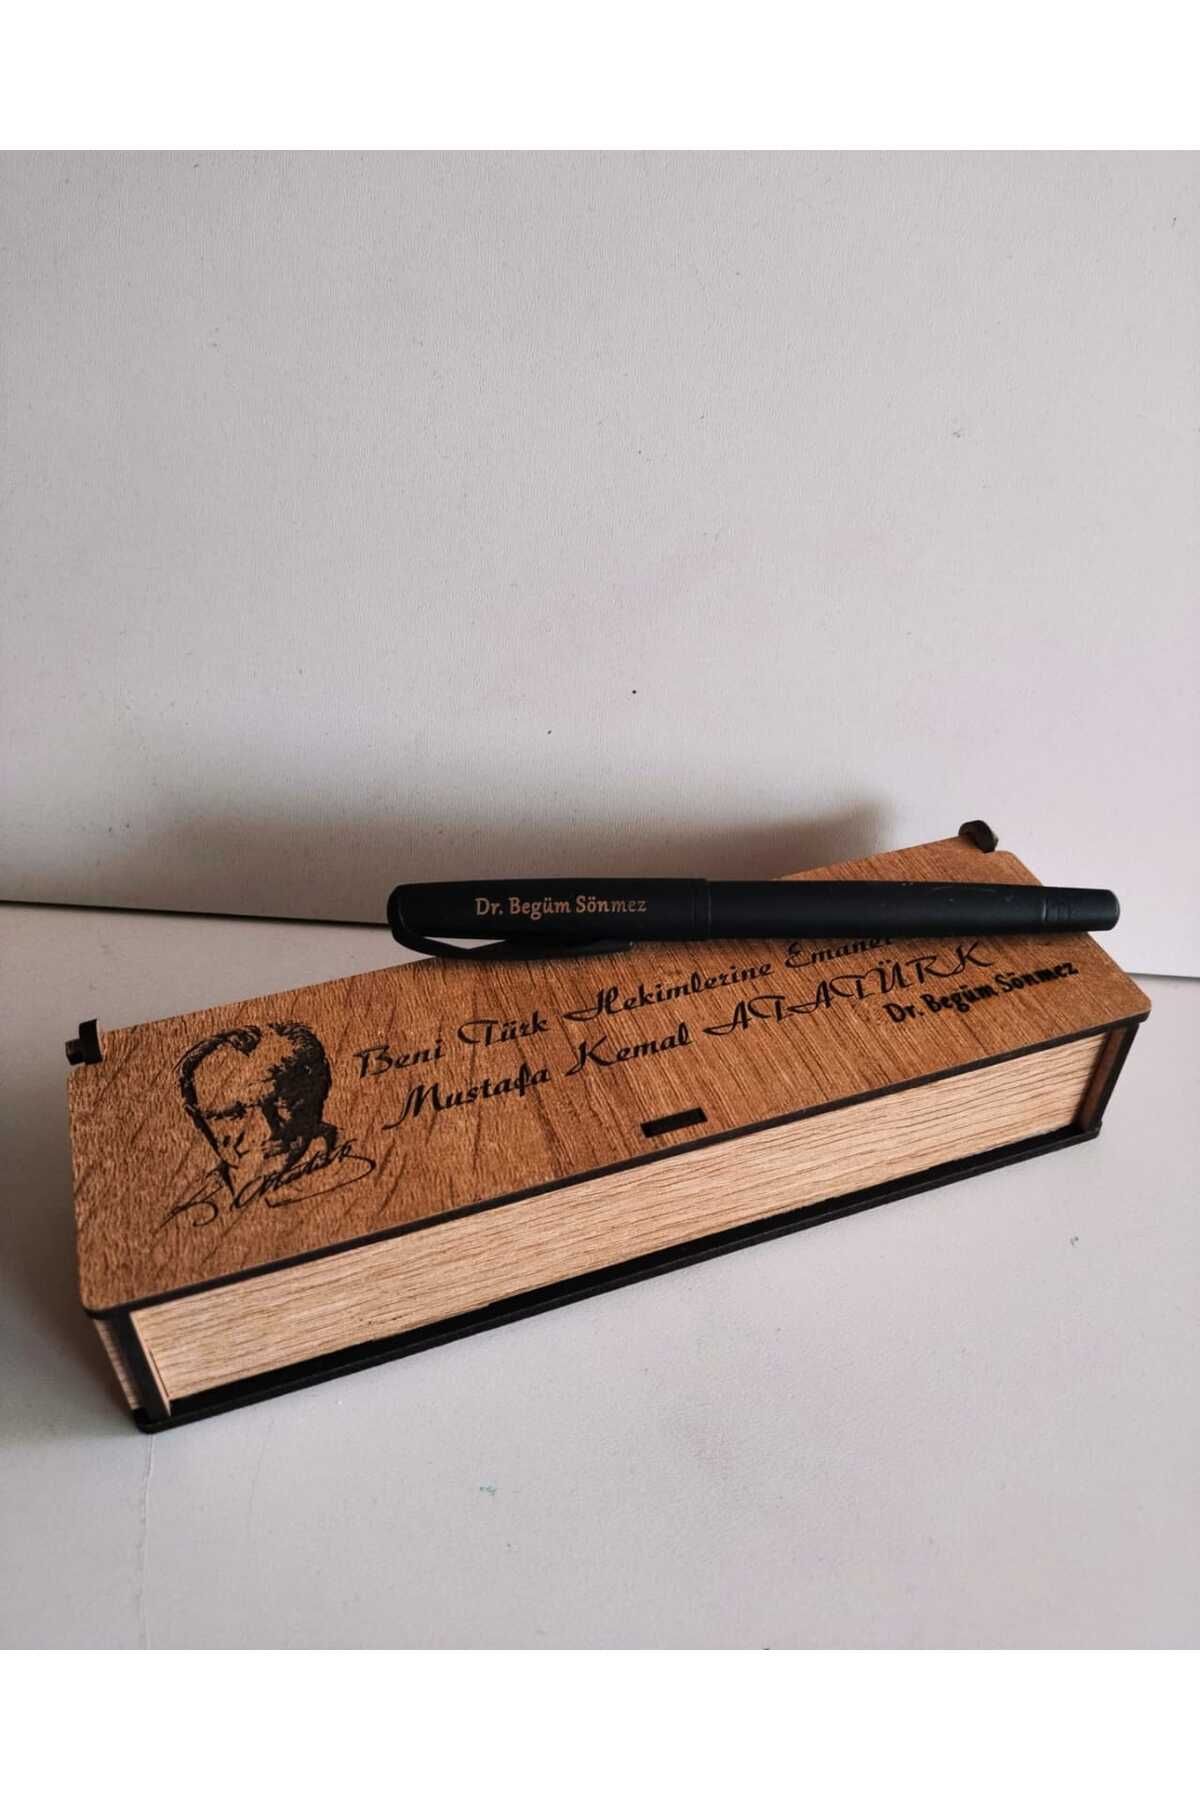 Dr. Begüm Sönmez
Beni Türk Hekimlerine Emanet
Mustafa Kemal ATATÜRK
Dr. Begüm Sönmez